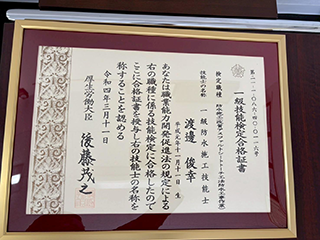 一級技能検定合格証書
検定職種
技能士の名称 一級防水施工技能士
渡邊 俊幸
平成元年十一月十一日 生
あなたは職業能力開発促進法の規定による
右の職種に係る技能検定に合格したので
ここに合格証書を授与し右の技能士の名称を
称することを認める
令和四年三月十一日
厚生労働大臣 後藤茂之